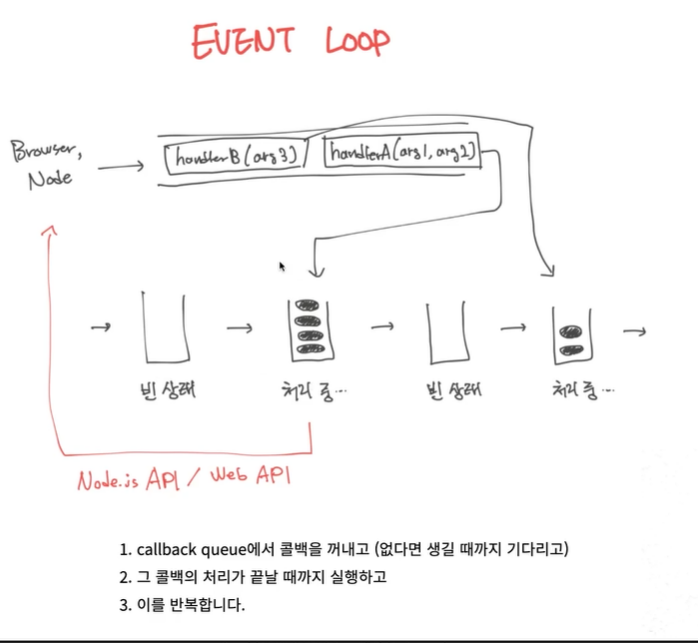 EVENT LOOP
Browser,
Node
handlerB(arg3)
handlerA(arg1, arg2)
빈 상태
처리 중...
빈 상태
처리 중...
Node.js API / Web API
1. callback queue에서 콜백을 꺼내고 (없다면 생길 때까지 기다리고)
2. 그 콜백의 처리가 끝날 때까지 실행하고
3. 이를 반복합니다.